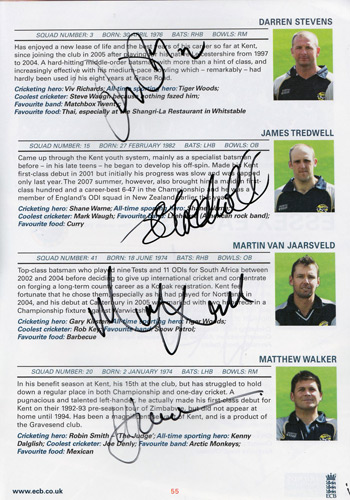 DARREN STEVENS
SQUAD NUMBER: 3 BORN: 30 APRIL 1976 BATS: RHB BOWLS: RM
Has enjoyed a new lease of life and the best form of his career so far at Kent,
since joining the club in 2005 after playing for Leicestershire from 1997
to 2004. A hard-hitting middle-order batsman with more than a hint of class, and
increasingly effective with his medium-pace bowling which – remarkably – had
hardly been used in his eight years at Grace Road.
Cricketing hero: Viv Richards; All-time sporting hero: Tiger Woods;
Coolest cricketer: Steve Waugh because nothing fazed him;
Favourite band: Matchbox Twenty
Favourite food: Thai, especially The Shangri-La Restaurant in Whitstable
JAMES TREDWELL
SQUAD NUMBER: 15 BORN: 27 FEBRUARY 1982 BATS: LHB BOWLS: OB
Came up through the Kent youth system, mainly as a specialist batsman
before – in his late teens – he began to develop his off-spin. Made his Kent
first-class debut in 2001 but initially his progress was slow and was capped
only last year. The 2007 summer, however, also brought him a maiden first-
class hundred and a career-best 6-47 in the Championship and he was a
member of England's ODI squad in New Zealand earlier this
Cricketing hero: Shane Warne; All-time sporting hero: Sha
Coolest cricketer: Mark Waugh; Favourite band: (American rock band);
Favourite food: Curry
MARTIN VAN JAARSVELD
SQUAD NUMBER: 41 BORN: 18 JUNE 1974 BATS: RHB BOWLS: OB
Top-class batsman who played nine Tests and 11 ODIs for South Africa between
2002 and 2004 before deciding to give up international cricket and concentrate
on forging a long-term county career as a Kolpak registration. Kent feel
fortunate that he chose them, especially as he had played for Northants in
2004, and his debut at Canterbury in 2005 was marked with two hundreds in a
Championship fixture against
Cricketing hero: Gary Kirsten; All-time sporting hero: Tiger Woods;
Coolest cricketer: Rob Key; Favourite band: Snow Patrol;
Favourite food: Barbecue
MATTHEW WALKER
SQUAD NUMBER: 20 BORN: 2 JANUARY 1974 BATS: LHB BOWLS: RM
In his benefit season at Kent, his 15th at the club, but has struggled to hold
down a regular place in both Championship and one-day cricket. A
pugnacious and talented left-hander, he actually made his first-class debut for
Kent on their 1992-93 pre-season tour of Zimbabwe, but did not appear at
home until 1994. Has been a magnificent servant of Kent, and is a product of
the Gravesend club.
Cricketing hero: Robin Smith ('The Judge'); All-time sporting hero: Kenny
Dalglish; Coolest cricketer: Joe Denly; Favourite band: Arctic Monkeys;
Favourite food: Mexican
www.ecb.co.uk
55
ECB